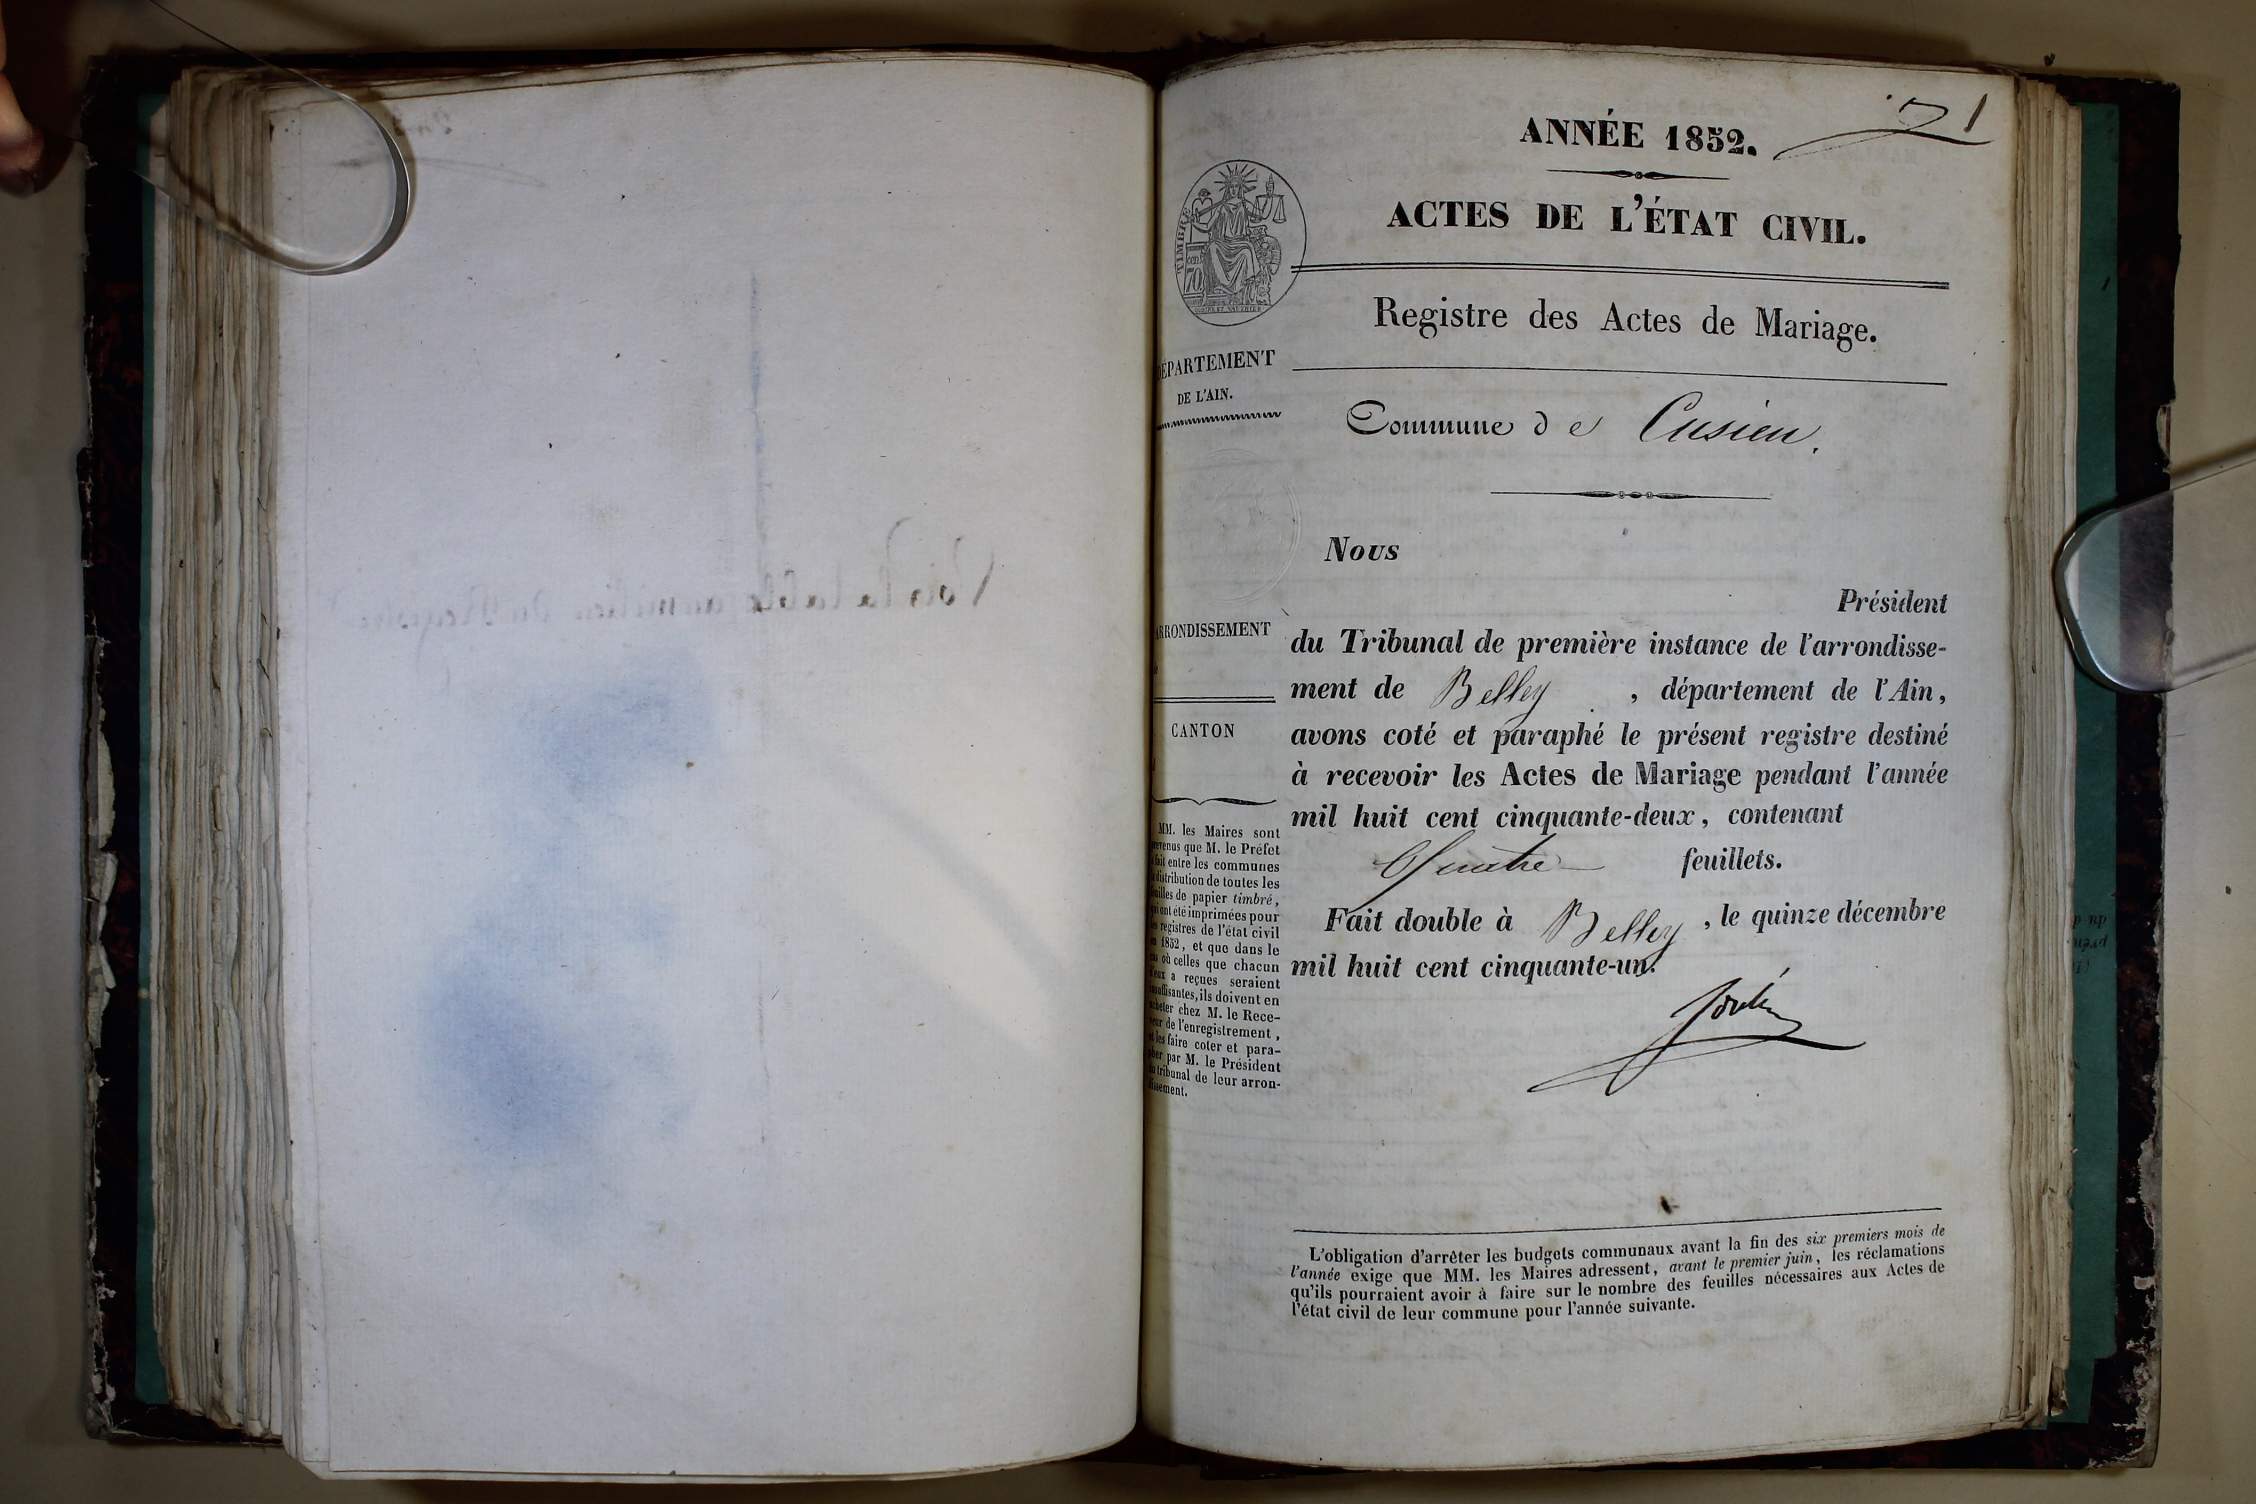 1
ANNÉE 1852.
ACTES DE L'ÉTAT CIVIL.
TIMBRE
70
Registre des Actes de Mariage.
DÉPARTEMENT
DE L'AIN.
Commune de Cusieu.
Nous
Président
du Tribunal de première instance de l'arrondisse-
ment de Belley, département de l'Ain,
avons coté et paraphé le présent registre destiné
à recevoir les Actes de Mariage pendant l'année
mil huit cent cinquante-deux, contenant
Quatre feuillets.
Fait double à Belley, le quinze décembre
mil huit cent cinquante-un.
ARRONDISSEMENT
CANTON
MM. les Maires sont
prévenus que M. le Préfet
a fait entre les communes
la distribution de toutes les
feuilles de papier timbré,
qui ont été imprimées pour
les registres de l'état civil
en 1852, et que dans le
cas où celles que chacun
d'eux a reçues seraient
insuffisantes, ils doivent en
acheter chez M. le Rece-
veur de l'enregistrement,
et les faire coter et para-
pher par M. le Président
du tribunal de leur arron-
dissement.
L'obligation d'arrêter les budgets communaux avant la fin des six premiers mois de
l'année exige que MM. les Maires adressent, avant le premier juin, les réclamations
qu'ils pourraient avoir à faire sur le nombre des feuilles nécessaires aux Actes de
l'état civil de leur commune pour l'année suivante.